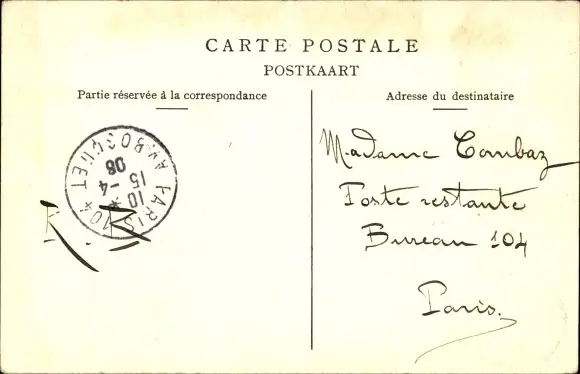 CARTE POSTALE
POSTKAART
Partie réservée à la correspondance
Adresse du destinataire
PARIS 104
AV. BOSQUET
10 *
15 -4
08
Madame Combaz
Poste restante
Bureau 104
Paris.